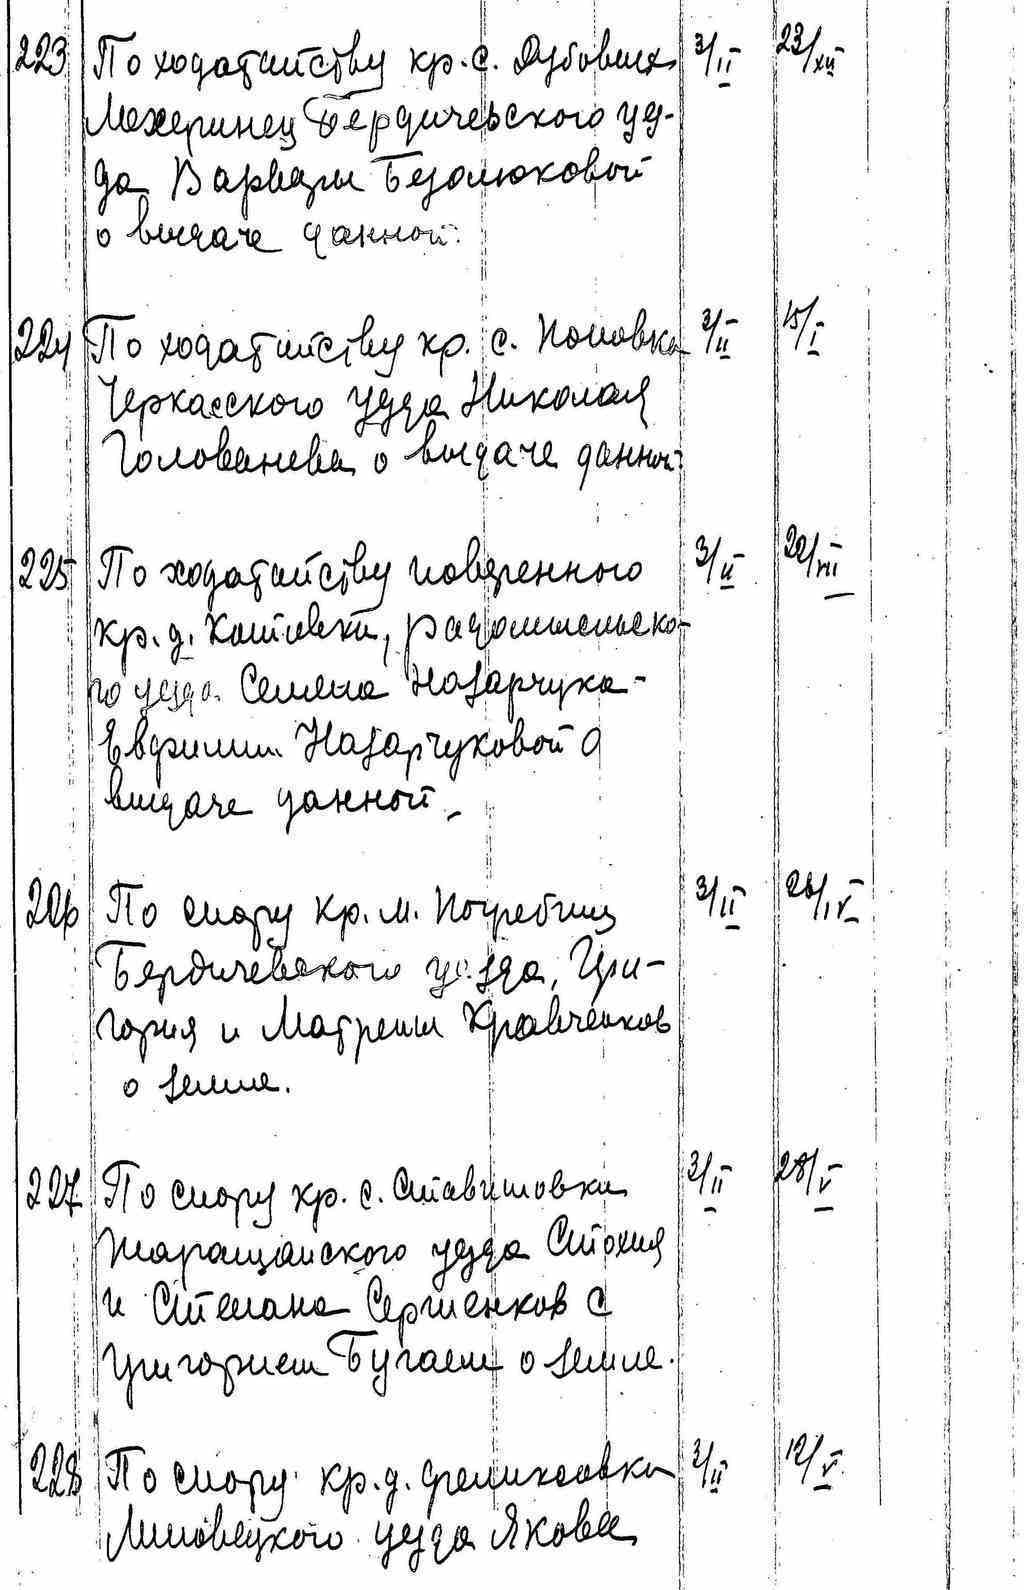 223 По ходатайству кр. с. Дубовых 3/II 23/XII
Махаринец Бердичевского уез-
да Варвары Безолюковой
о выдаче данной.
224 По ходатайству кр. с. Поповка 3/II 15/I
Черкасского уезда Николая
Голованева о выдаче данной
225 По ходатайству поверенного 3/II
кр. д. радомысльско-
го уезда Семена Назарчука -
Евфимии Назарчуковой о
выдаче данной
226 По спору кр. м. Погребищ 3/II 26/IV
Бердичевского уезда, Гри-
гория и Матрены Кравченков
о земле.
227 По спору кр. с. Ставишовки 3/II 28/V
Таращанского уезда
и Степана Сергиенков с
Григорием Бугаем о земле.
228 По спору кр. д. Феликсовки 3/II 12/V
Липовецкого уезда Якова